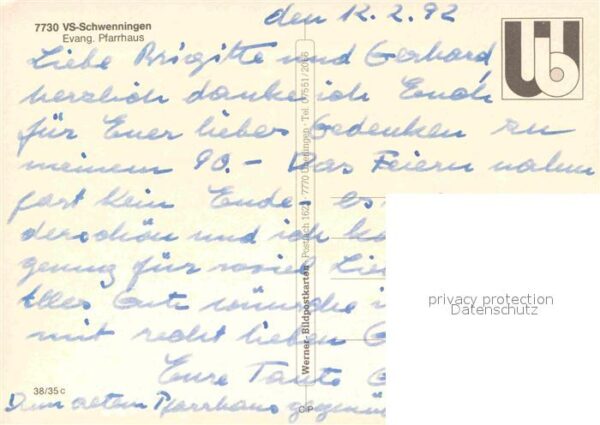 7730 VS-Schwenningen
Evang. Pfarrhaus
den 12. 2. 92
Liebe Brigitte und Gerhard,
herzlich danke ich Euch
für Euer liebes Gedenken zu
meinem 90. - Das Feiern nahm
fast kein Ende, es
derschön und ich
genug für soviel Lie
Alles Gute wünsche i
mit recht lieben G
Eure Tante G
Dem altem Pfarrhaus gegenü
38/35 c
C P
Werner-Bildpostkarten · Postfach 162 · 7770 Überlingen · Tel. 07551/2066
privacy protection
Datenschutz